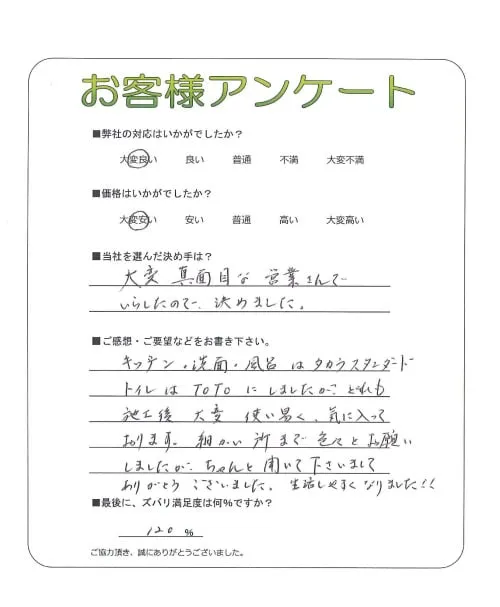 お客様アンケート
■弊社の対応はいかがでしたか？
大変良い 良い 普通 不満 大変不満
■価格はいかがでしたか？
大変安い 安い 普通 高い 大変高い
■当社を選んだ決め手は？
大変 真面目な 営業さんで
いらしたので、決めました。
■ご感想・ご要望などをお書き下さい。
キッチン・洗面・風呂はタカラスタンダード
トイレはTOTOにしましたが、どれも
施工後 大変 使い易く、気に入って
おります。細かい所まで色々とお願い
しましたが、ちゃんと聞いて下さいまして
ありがとうございました。生活しやすくなりました!!
■最後に、ズバリ満足度は何%ですか？
120 %
ご協力頂き、誠にありがとうございました。